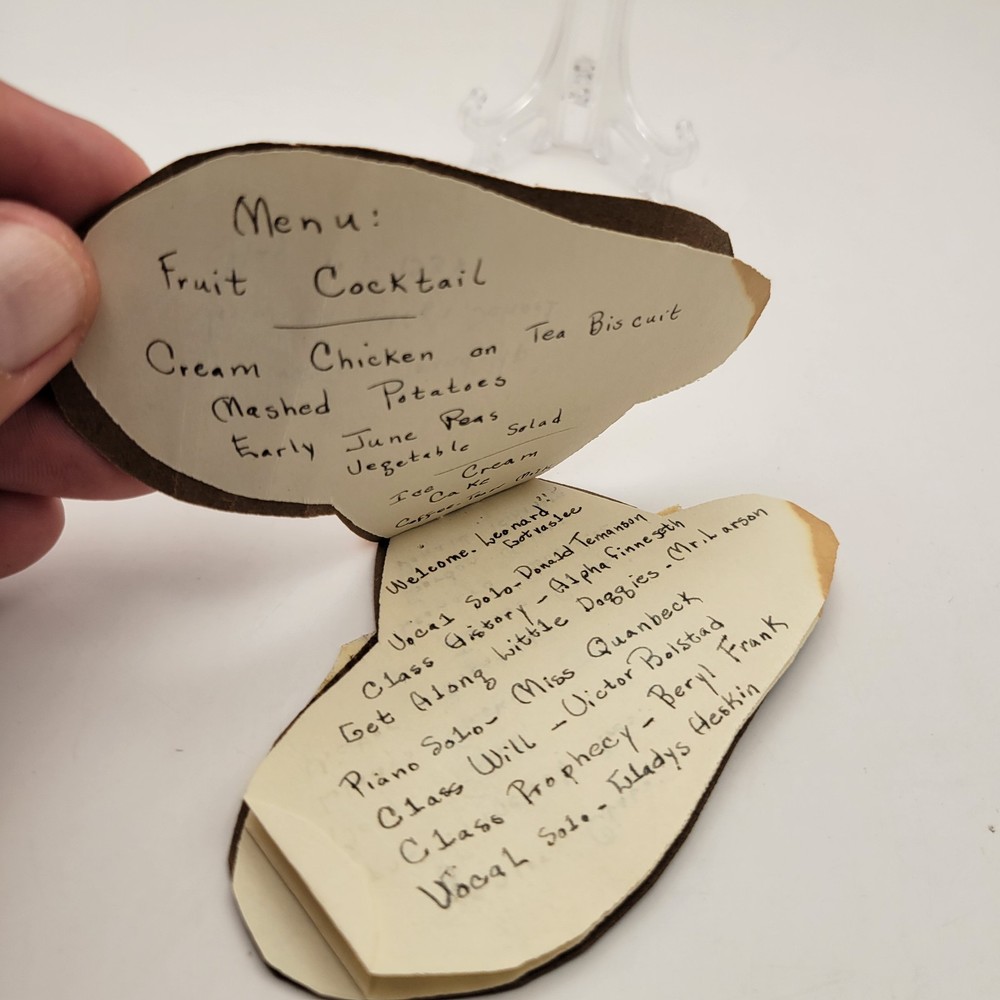 Menu:
Fruit Cocktail
Cream Chicken on Tea Biscuit
Mashed Potatoes
Early June Peas
Vegetable Salad
Ice Cream
Cake
Coffee
Welcome. Leonard
Vocal Solo- Donald
Class History - Alpha Finneseth
Get Along Little Doggies - Mr. Larson
Piano Solo- Miss Quanbeck
Class Will - Victor Bolstad
Class Prophecy - Beryl Frank
Vocal Solo. - Gladys Heskin